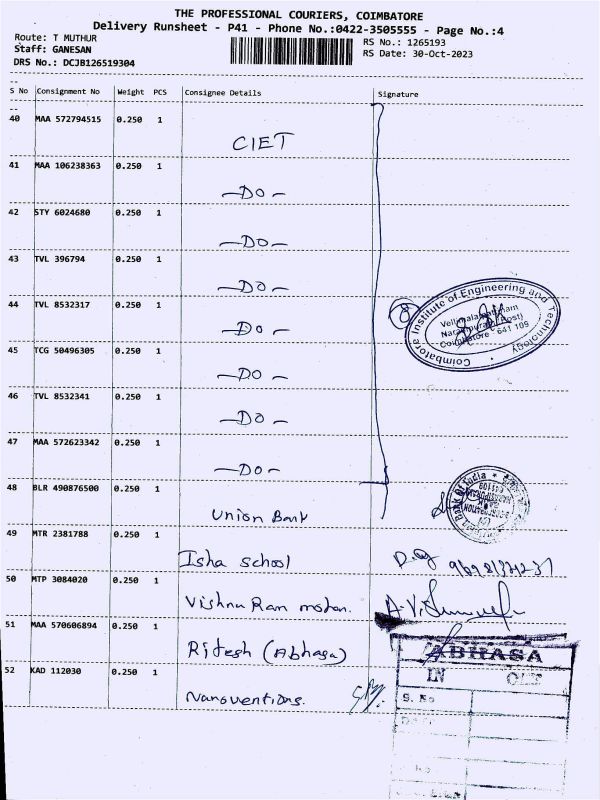 THE PROFESSIONAL COURIERS, COIMBATORE
Delivery Runsheet - P41 - Phone No.:0422-3505555 - Page No.:4
Route: T MUTHUR
RS No.: 1265193
Staff: GANESAN
RS Date: 30-Oct-2023
DRS No.: DCJB126519304
S No Consignment No Weight PCS Consignee Details Signature
40 MAA 572794515 0.250 1
CIET
41 MAA 106238363 0.250 1
-DO-
42 STY 6024680 0.250 1
-DO-
43 TVL 396794 0.250 1
-DO-
44 TVL 8532317 0.250 1
-DO-
8
Coimbatore Institute of Engineering and Technology
Vellimalaipattinam
Narasipuram (Post)
Coimbatore - 641 109
45 TCG 50496305 0.250 1
-DO-
46 TVL 8532341 0.250 1
-DO-
47 MAA 572623342 0.250 1
-DO-
48 BLR 490876500 0.250 1
Union Bank
49 MTR 2381788 0.250 1
Isha school
50 MTP 3084020 0.250 1
Vishnu Ram mohan.
51 MAA 570606894 0.250 1
Ritesh (Abhasa)
ABHASA
IN OUT
52 KAD 112030 0.250 1
Nanoventions.
S. No